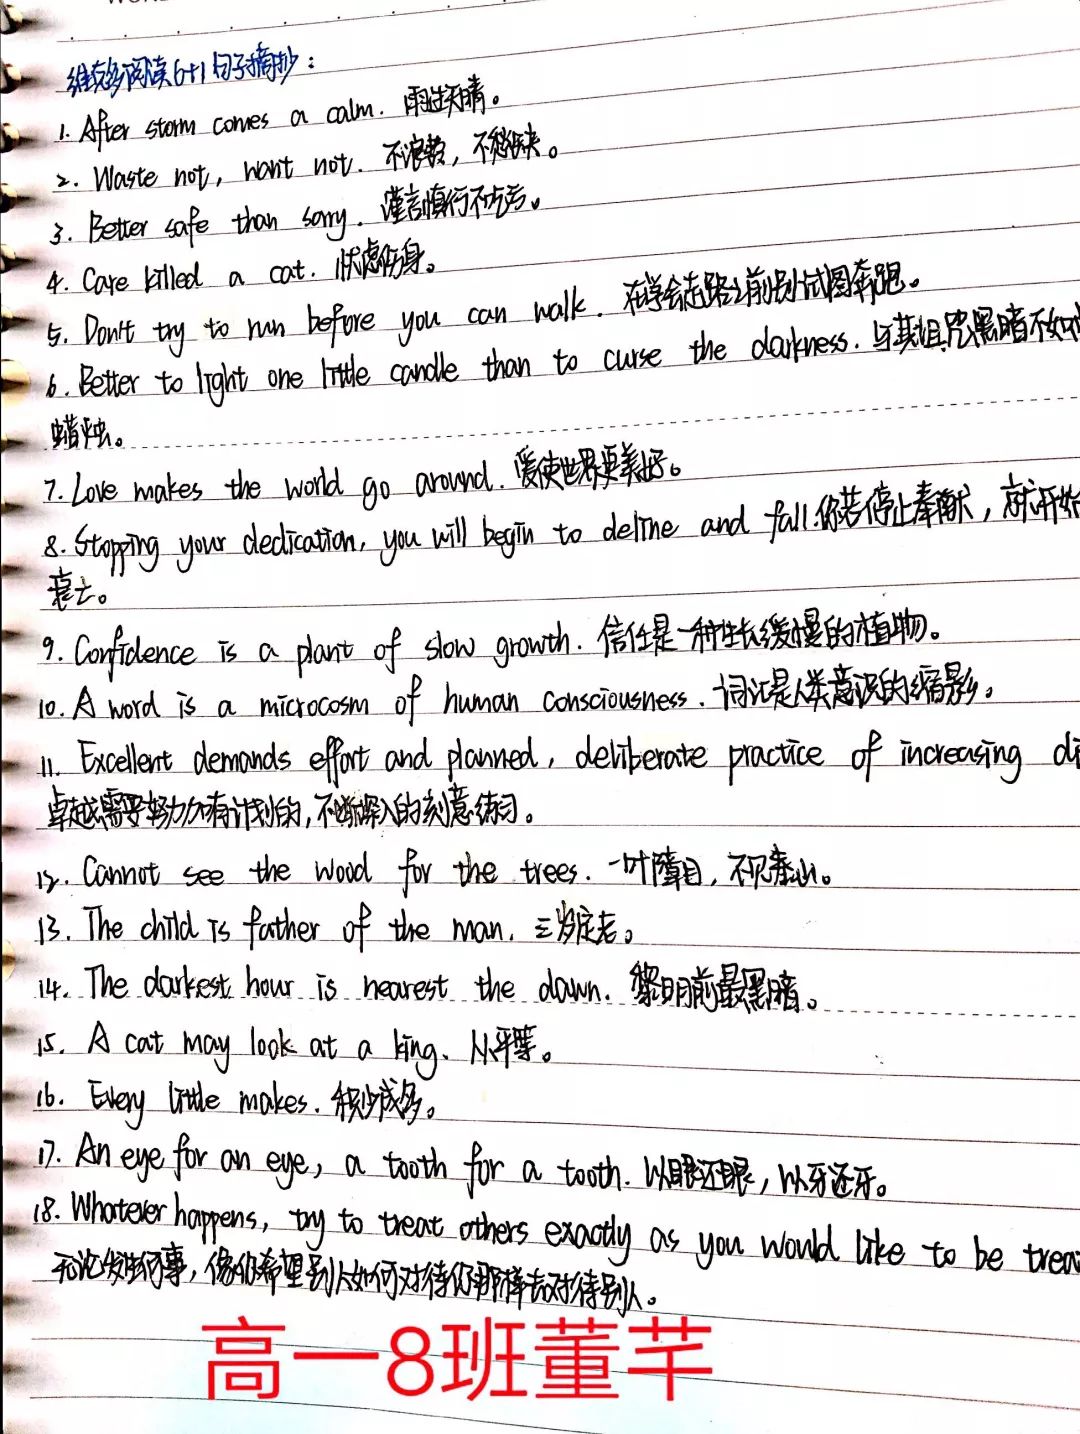 维克多阅读6+1句子摘抄：
1. After storm comes a calm. 雨过天晴。
2. Waste not, want not. 不浪费，不愁缺。
3. Better safe than sorry. 谨言慎行不吃亏。
4. Care killed a cat. 忧虑伤身。
5. Don't try to run before you can walk. 在学会走路之前别试图奔跑。
6. Better to light one little candle than to curse the darkness. 与其诅咒黑暗不如
蜡烛。
7. Love makes the world go around. 爱使世界更美好。
8. Stopping your dedication, you will begin to deline and fall. 你若停止奉献，就开始
衰亡。
9. Confidence is a plant of slow growth. 信任是一种生长缓慢的植物。
10. A word is a microcosm of human consciousness. 词汇是人类意识的缩影。
11. Excellent demands effort and planned, deliberate practice of increasing di
卓越需要努力加有计划的，不断深入的刻意练习。
12. Cannot see the wood for the trees. 一叶障目，不见泰山。
13. The child is father of the man. 三岁定老。
14. The darkest hour is nearest the dawn. 黎明前最黑暗。
15. A cat may look at a king. 人人平等。
16. Every little makes. 积少成多。
17. An eye for an eye, a tooth for a tooth. 以眼还眼，以牙还牙。
18. Whatever happens, try to treat others exactly as you would like to be trea
无论发生何事，像你希望别人如何对待你那样去对待别人。
高一8班董芊